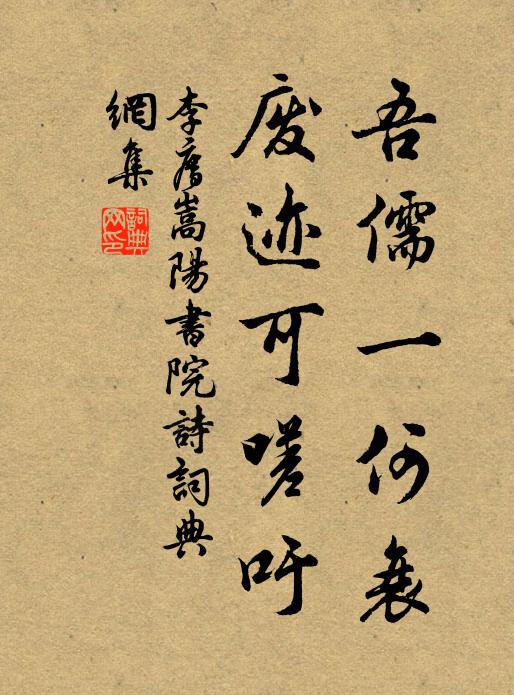 吾儒一何衰
废迹可嗟吁
李廌嵩陽書院詩詞典
網集
詞典
网印